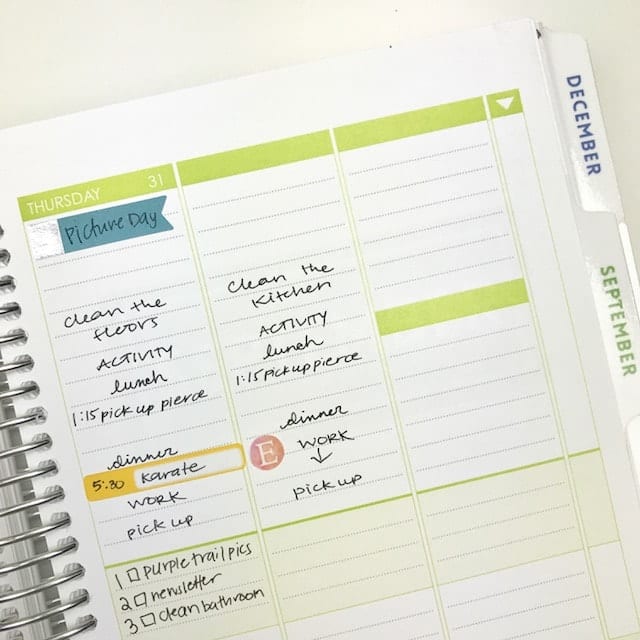 THURSDAY 31
Picture Day
clean the
floors
ACTIVITY
lunch
1:15 pick up pierce
dinner
5:30 karate
WORK
pick up
1 purple trail pics
2 newsletter
3 clean bathroom
clean the
kitchen
ACTIVITY
lunch
1:15 pick up pierce
dinner
E WORK
pick up
DECEMBER
SEPTEMBER